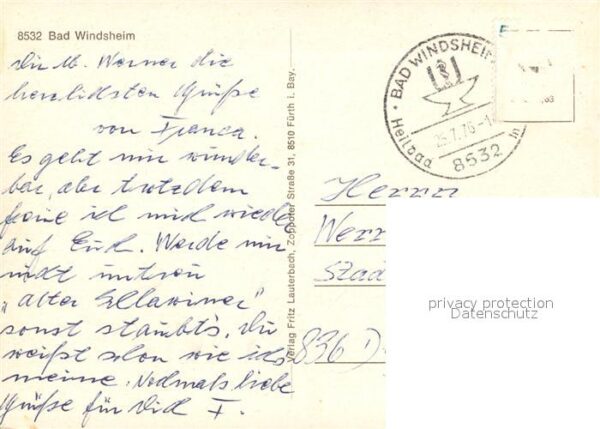 8532 Bad Windsheim
Dir lb. Werner die
herzlichsten Grüße
von Franca.
Es geht mir wunder-
bar, aber trotzdem
freue ich mich wieder
auf Euch. Werde mir
nicht untreu
"alter
sonst staubt's. Du
weißt schon wie ich's
meine. Nochmals liebe
Grüße für Dich F.
Verlag Fritz Lauterbach, Zoppoter Straße 31, 8510 Fürth i. Bay.
BAD WINDSHEIM
Heilbad
8532
Herrn
Wer
Stad
836 D
privacy protection
Datenschutz